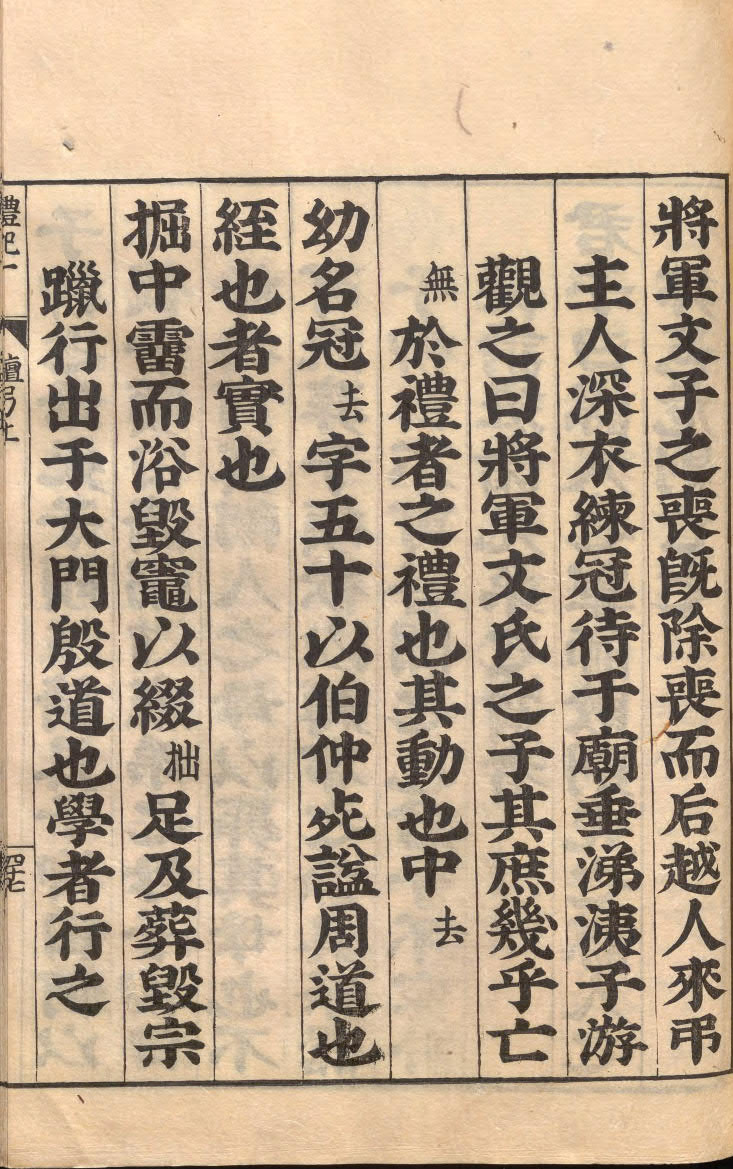 將軍文子之喪旣除喪而后越人來弔
主人深衣練冠待于廟垂涕洟子游
觀之曰將軍文氏之子其庶幾乎亡
無於禮者之禮也其動也中去
幼名冠去字五十以伯仲死諡周道也
絰也者實也
掘中霤而浴毀竈以綴拙足及葬毀宗
躐行出于大門殷道也學者行之
禮記一
檀弓上
四十七